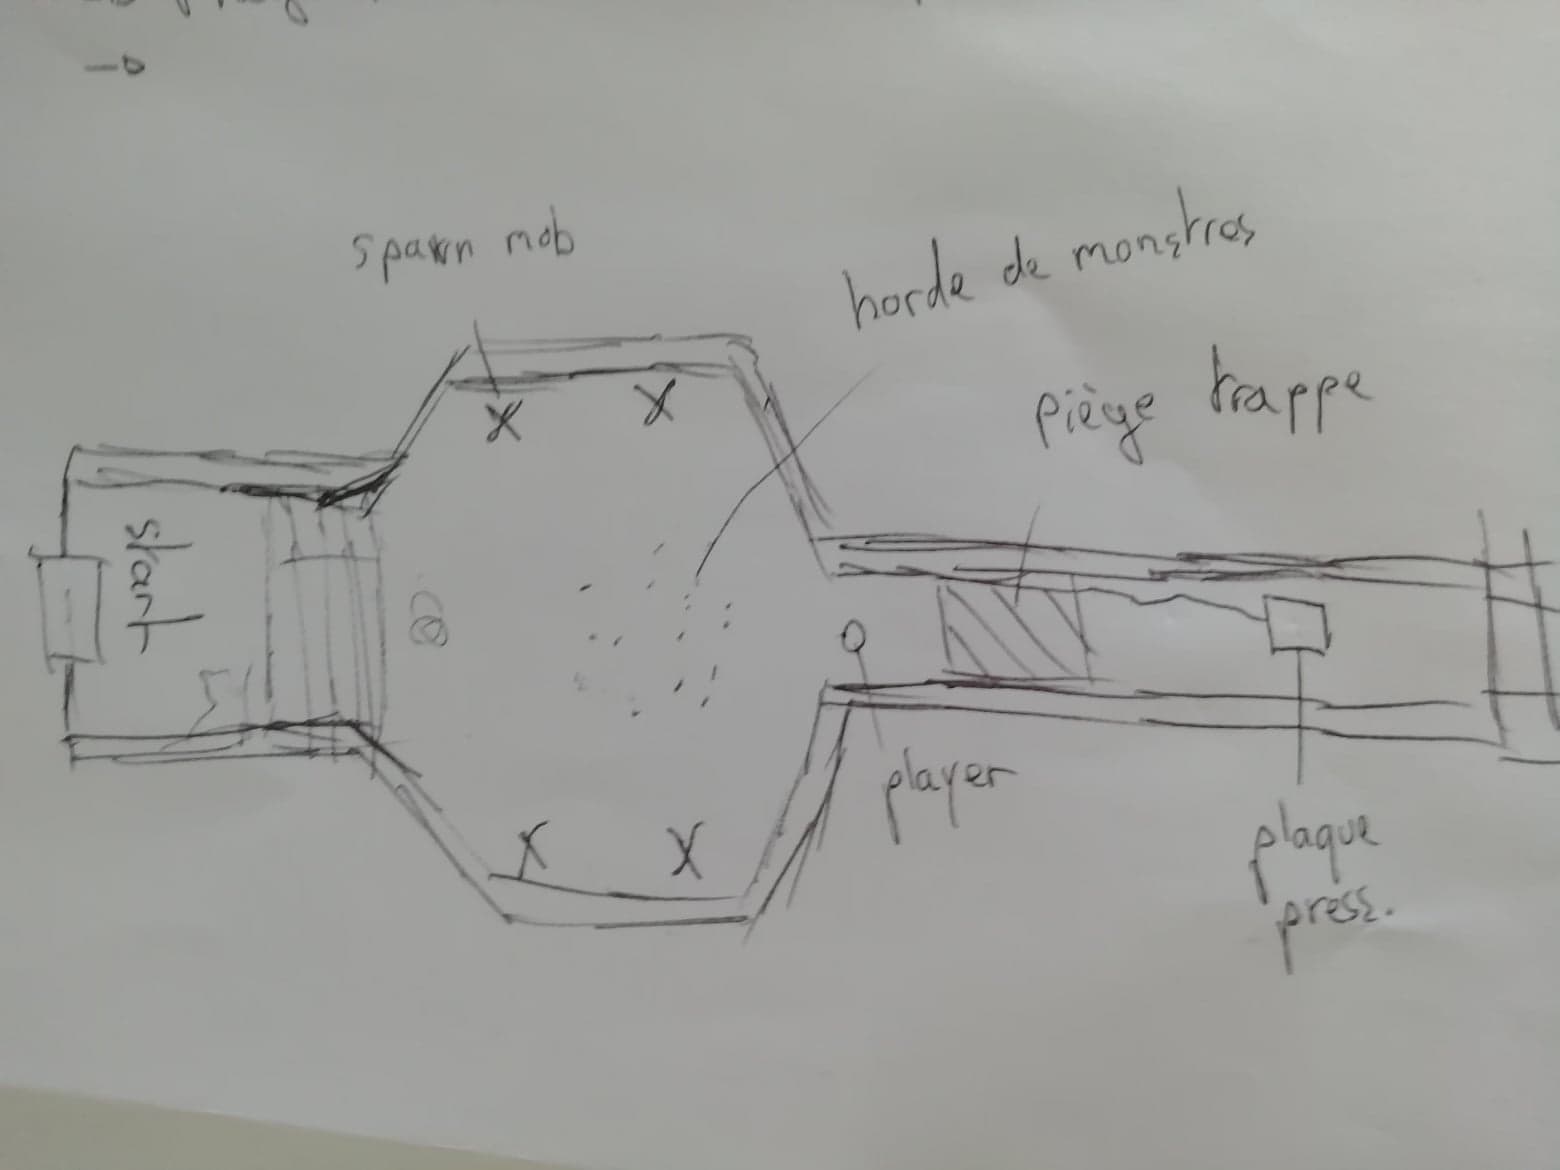 spawn mob
horde de monstres
piège trappe
start
player
plaque
press.